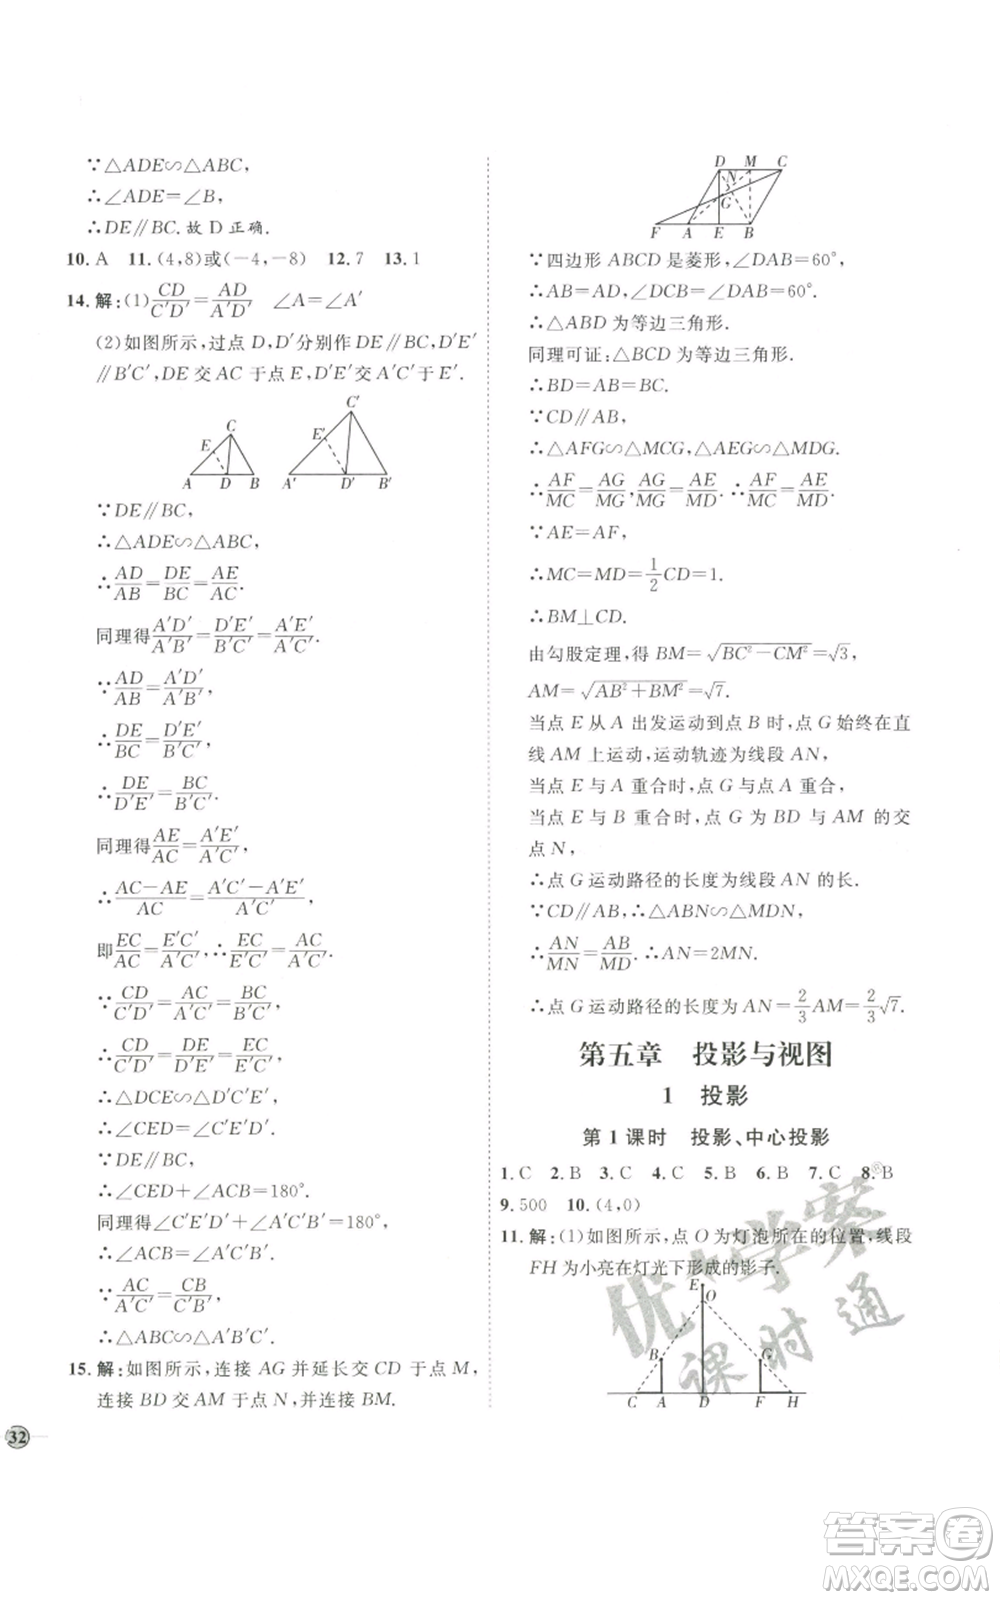 ∵△ADE∽△ABC,
∴∠ADE=∠B,
∴DE∥BC.故 D 正确.
10.A 11.(4,8)或(-4,-8) 12.7 13.1
14.解:(1)CD/C′D′=AD/A′D′ ∠A=∠A′
(2)如图所示,过点 D,D′分别作 DE∥BC,D′E′
∥B′C′,DE 交 AC 于点 E,D′E′交A′C′于E′.
C
E
A D B
C′
E′
A′ D′ B′
∵DE∥BC,
∴△ADE∽△ABC,
∴AD/AB=DE/BC=AE/AC.
同理得A′D′/A′B′=D′E′/B′C′=A′E′/A′C′.
∵AD/AB=A′D′/A′B′,
∴DE/BC=D′E′/B′C′,
∴DE/D′E′=BC/B′C′.
同理得AE/AC=A′E′/A′C′,
∴AC-AE/AC=A′C′-A′E′/A′C′,
即EC/AC=E′C′/A′C′,∴EC/E′C′=AC/A′C′.
∵CD/C′D′=AC/A′C′=BC/B′C′,
∴CD/C′D′=DE/D′E′=EC/E′C′,
∴△DCE∽△D′C′E′,
∴∠CED=∠C′E′D′,
∵DE∥BC,
∴∠CED+∠ACB=180°.
同理得∠C′E′D′+∠A′C′B′=180°,
∴∠ACB=∠A′C′B′,
∵AC/A′C′=CB/C′B′,
∴△ABC∽△A′B′C′.
15.解:如图所示,连接 AG 并延长交 CD 于点 M,
连接 BD 交 AM 于点 N,并连接 BM.
32
D M C
N
G
F A E B
∵四边形 ABCD 是菱形,∠DAB=60°,
∴AB=AD,∠DAB=60°.
∴△ABD 为等边三角形.
同理可证:△BCD 为等边三角形.
∴BD=AB=BC.
∵CD∥AB,
∴△AFG∽△MCG,△AEG∽△MDG.
∴AF/MC=AG/MG,AG/MG=AE/MD.∴AF/MC=AE/MD.
∵AE=AF,
∴MC=MD=1/2CD=1.
∴BM⊥CD.
由勾股定理,得 BM=√(BC²-CM²)=√3,
AM=√(AB²+BM²)=√7.
当点 E 从 A 出发运动到点 B 时,点 G 始终在直
线 AM 上运动,运动轨迹为线段 AN,
当点 E 与 A 重合时,点 G 与点 A 重合,
当点 E 与 B 重合时,点 G 为 BD 与 AM 的交
点 N,
∴点 G 运动路径的长度为线段 AN 的长.
∵CD∥AB,∴△ABN∽△MDN,
∴AN/MN=AB/MD.∴AN=2MN.
∴点 G 运动路径的长度为 AN=2/3AM=2/3√7.
第五章 投影与视图
1 投影
第 1 课时 投影、中心投影
1.C 2.B 3.C 4.C 5.B 6.B 7.C 8.B
9.500 10.(4,0)
11.解:(1)如图所示,点 O 为灯泡所在的位置,线段
FH 为小亮在灯光下形成的影子.
E
O
B G
C A D F H
优+学案
课时通
答案卷
MXQE.COM